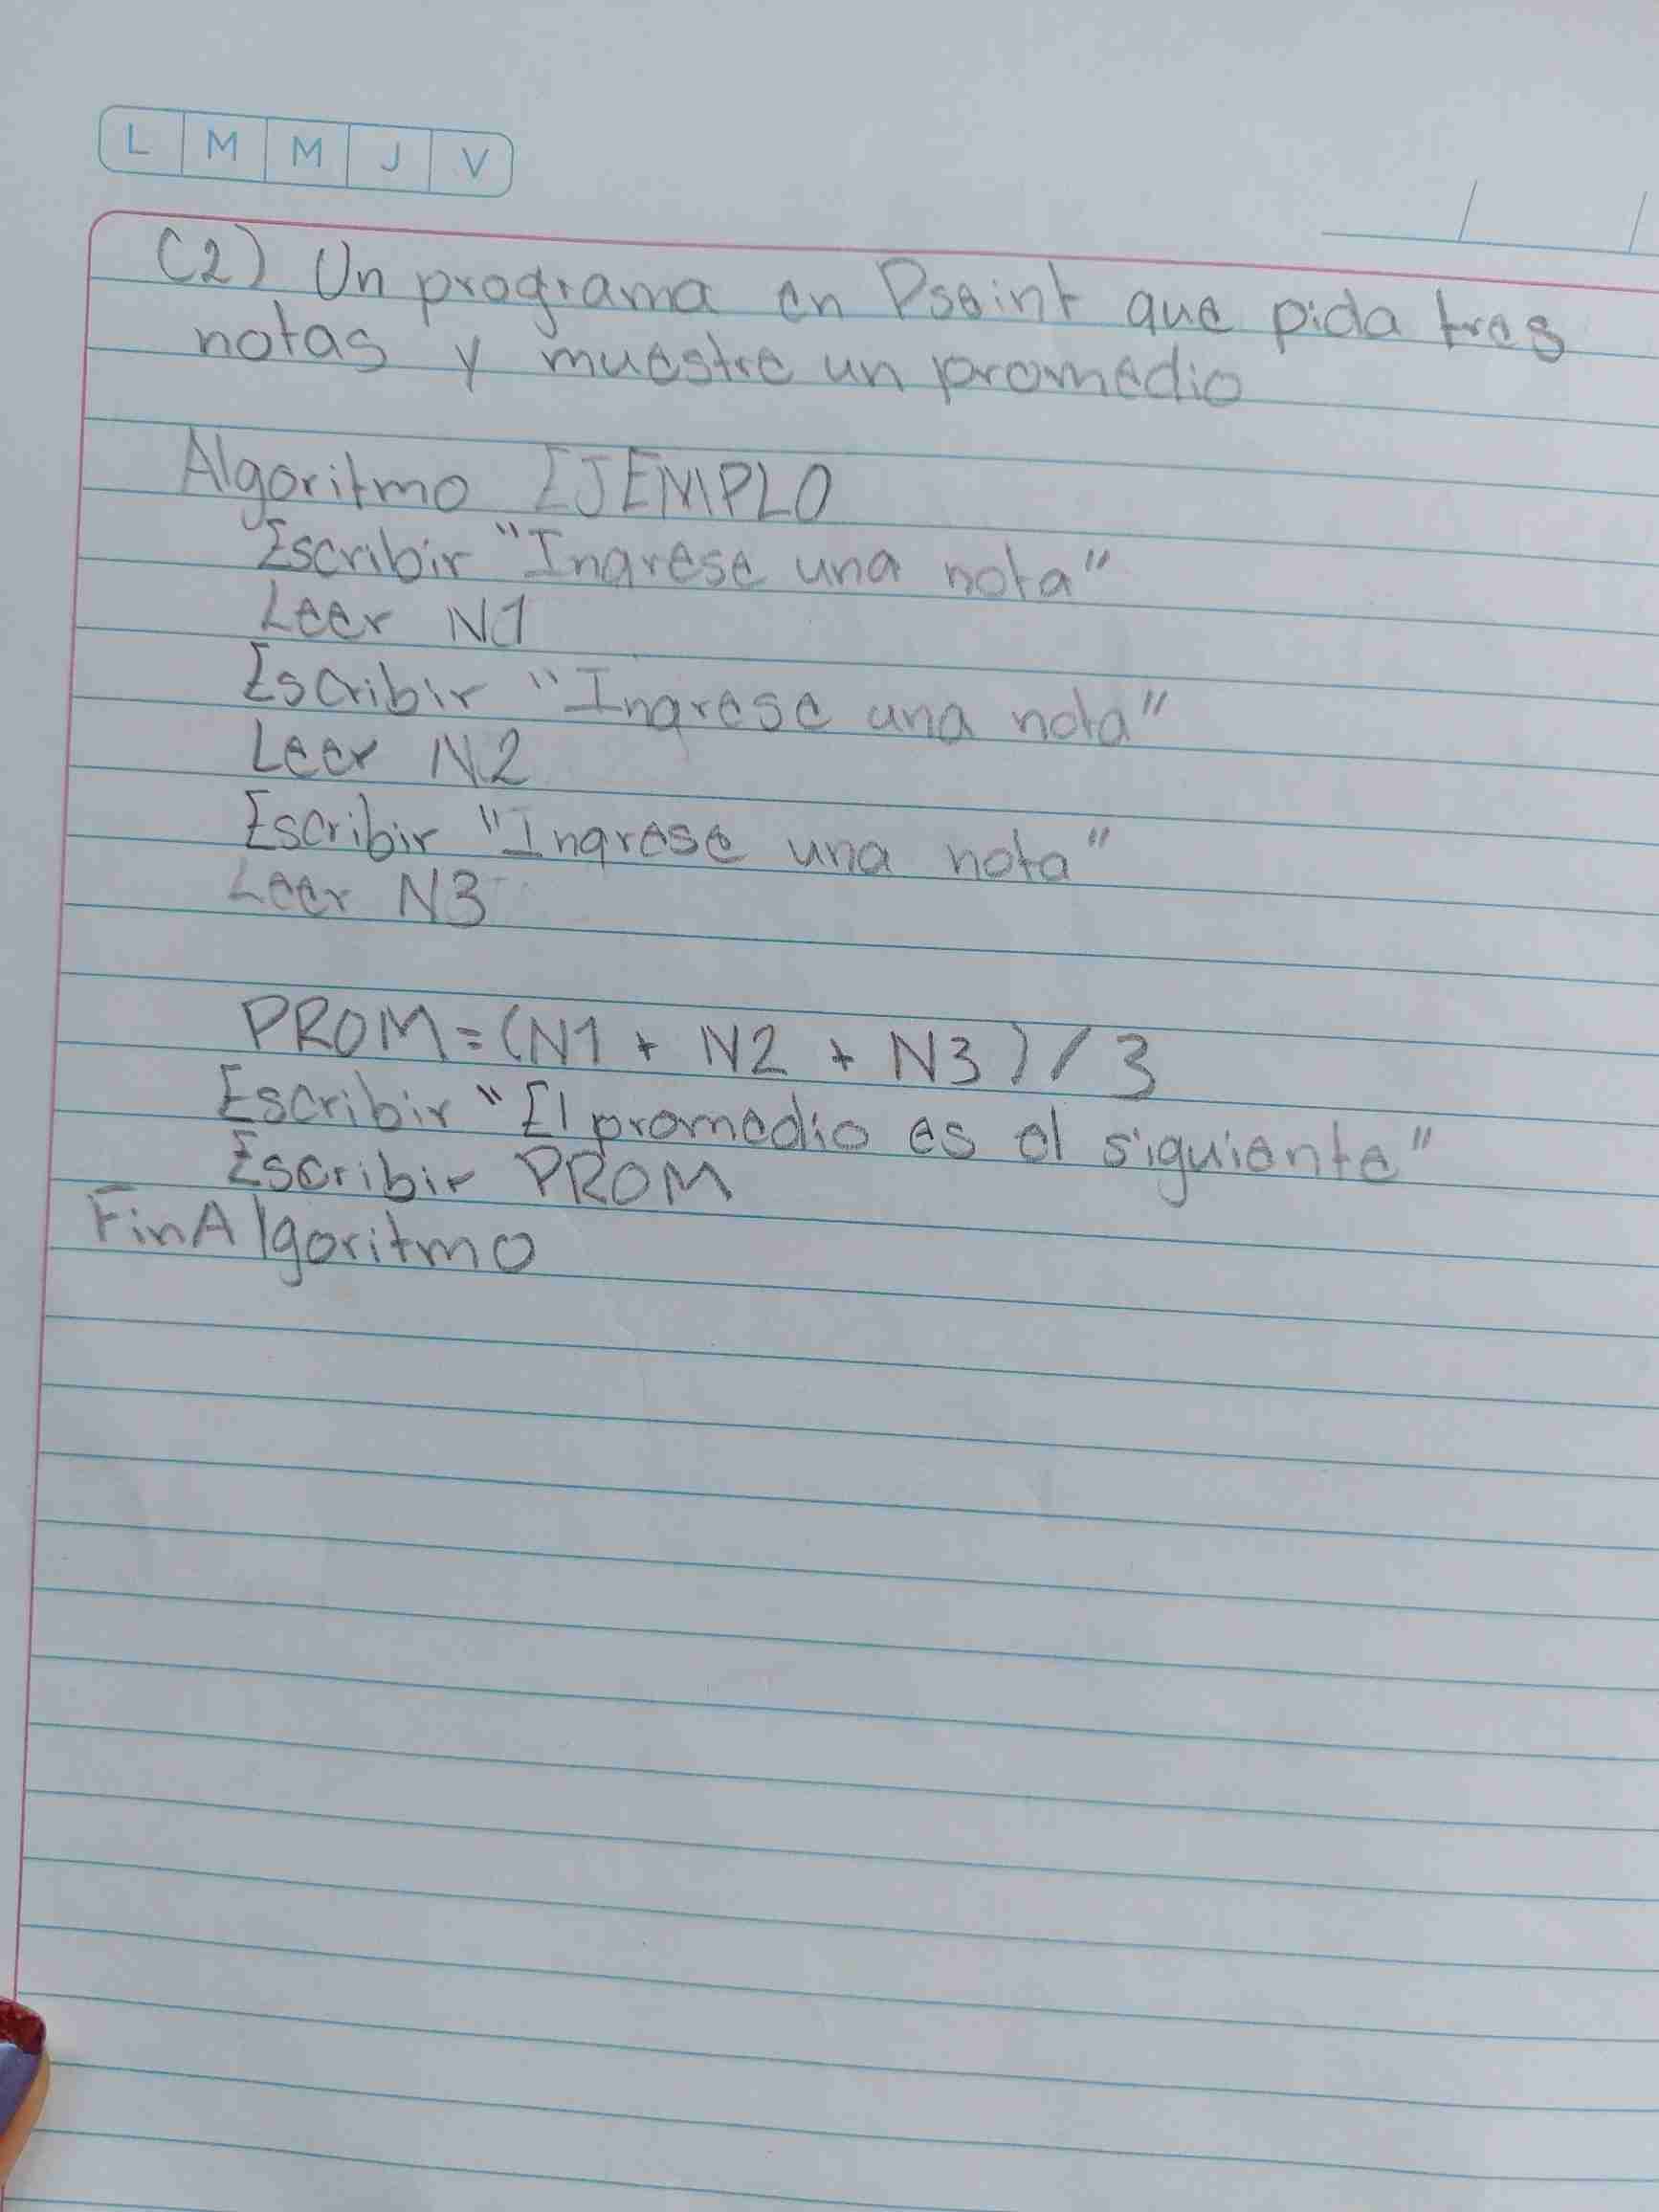 L M M J V
(2) Un programa en Pseint que pida tres
notas y muestre un promedio
Algoritmo EJEMPLO
Escribir "Ingrese una nota"
Leer N1
Escribir "Ingrese una nota"
Leer N2
Escribir "Ingrese una nota"
Leer N3
PROM=(N1 + N2 + N3)/3
Escribir "El promedio es el siguiente"
Escribir PROM
FinAlgoritmo